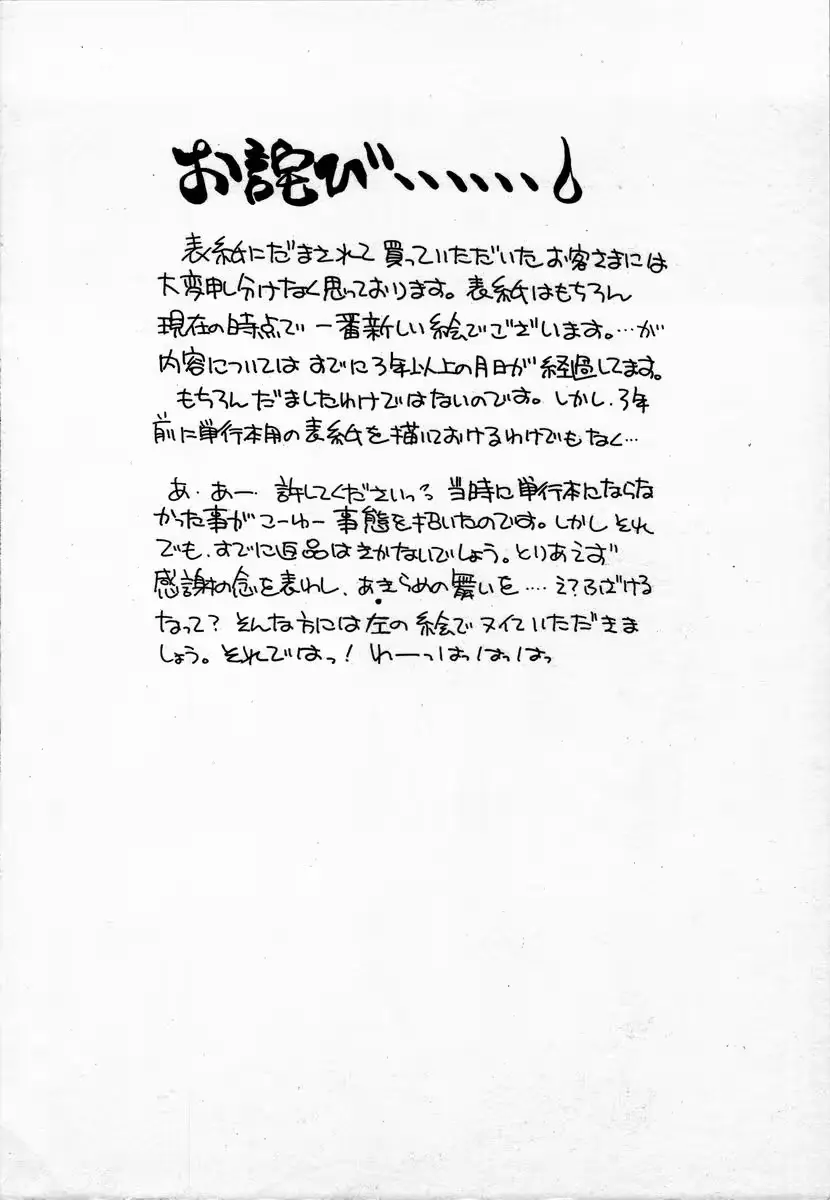 お詫び、、、、、、
表紙にだまされて買っていただいたお客さまには
大変申し分けなく思っております。表紙はもちろん
現在の時点で一番新しい絵でございます。…が
内容についてはすでに3年以上の月日が経過してます。
もちろんだましたわけではないのです。しかし、3年
前に単行本用の表紙を描いておけるわけでもなく…
あ・あー・許してくださいっ。当時に単行本にならな
かった事がこーゆー事態を招いたのです。しかしそれ
でも、すでに返品はきかないでしょう。とりあえず
感謝の念を表わし、あきらめの舞いを…え?ふざける
なって?そんな方には左の絵でヌイていただきま
しょう。それではっ!わーっはっはっはっ